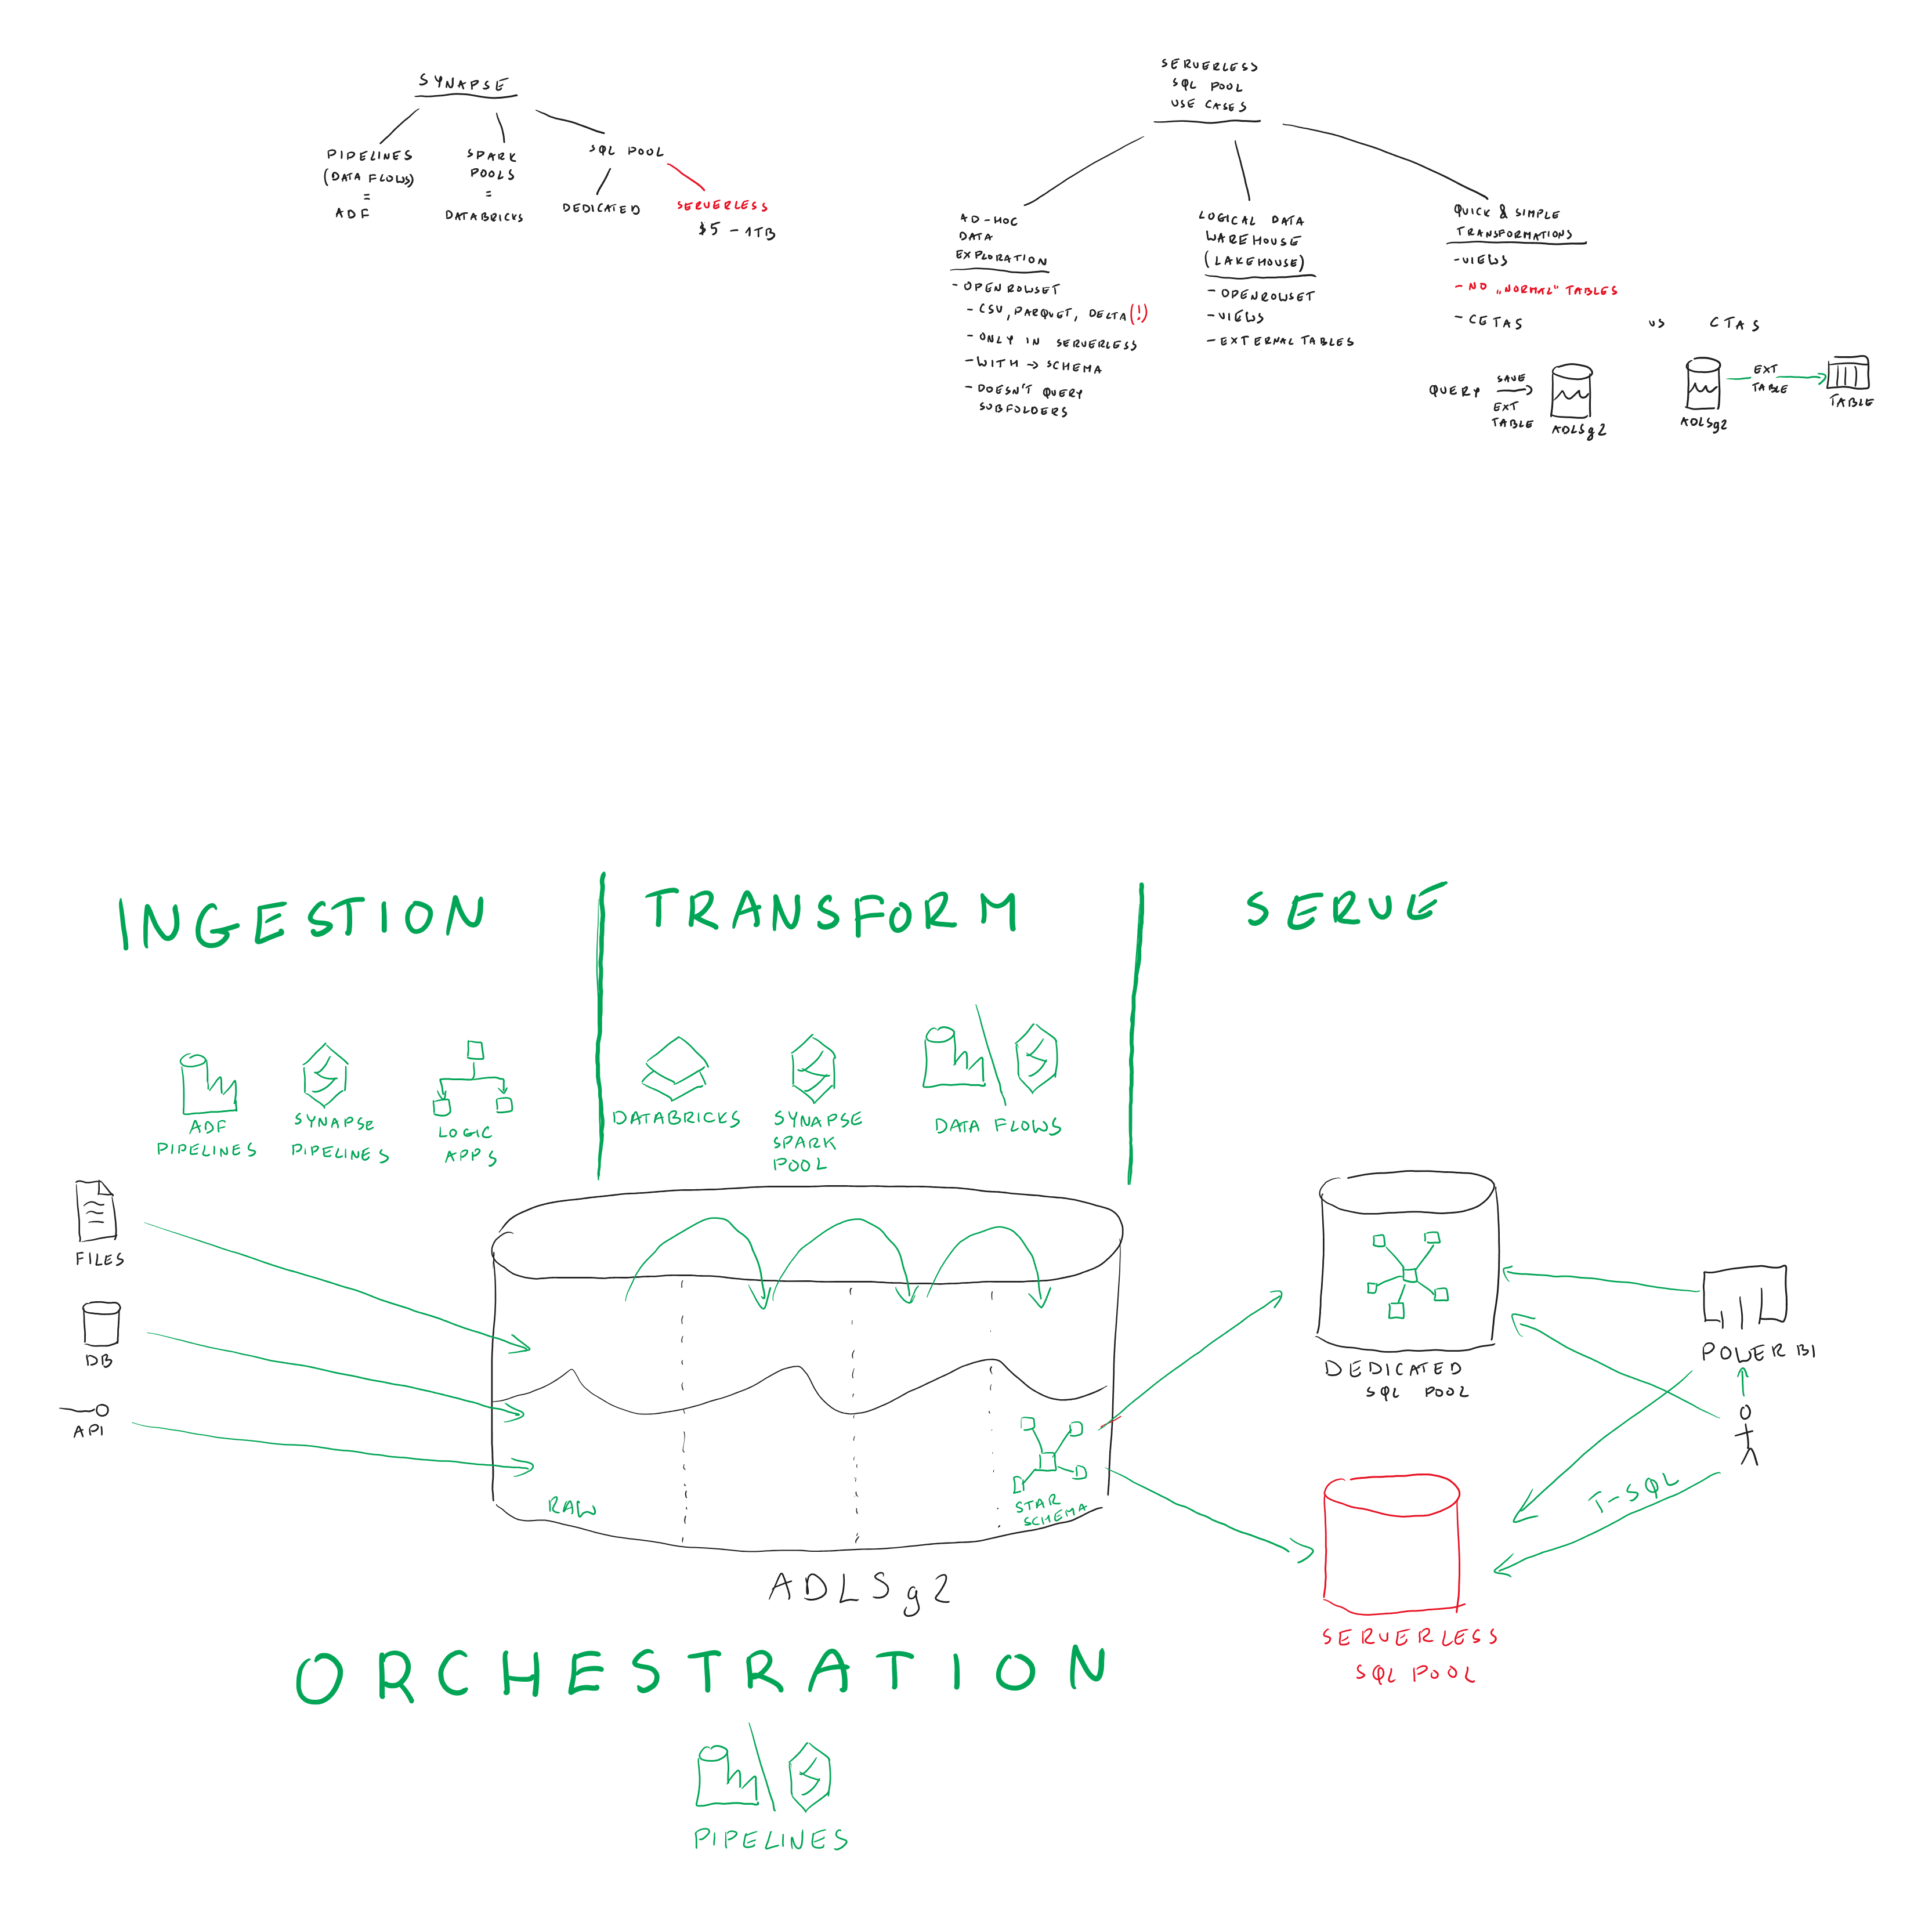 SYNAPSE
PIPELINES
(DATA FLOWS)
=
ADF
SPARK
POOLS
=
DATABRICKS
SQL POOL
DEDICATED
SERVERLESS
$5 - 1TB
SERVERLESS
SQL POOL
USE CASES
AD-HOC
DATA
EXPLORATION
- OPENROWSET
- CSV, PARQUET, DELTA (!)
- ONLY IN SERVERLESS
- WITH → SCHEMA
- DOESN'T QUERY
SUBFOLDERS
LOGICAL DATA
WAREHOUSE
(LAKEHOUSE)
- OPENROWSET
- VIEWS
- EXTERNAL TABLES
QUICK & SIMPLE
TRANSFORMATIONS
- VIEWS
- NO „NORMAL" TABLES
- CETAS vs CTAS
QUERY
SAVE
EXT
TABLE
ADLSg2
ADLSg2
EXT
TABLE
TABLE
INGESTION
TRANSFORM
SERVE
ADF
PIPELINES
SYNAPSE
PIPELINES
LOGIC
APPS
DATABRICKS
SYNAPSE
SPARK
POOL
DATA FLOWS
FILES
DB
API
RAW
STAR
SCHEMA
ADLSg2
DEDICATED
SQL POOL
POWER BI
T-SQL
SERVERLESS
SQL POOL
ORCHESTRATION
PIPELINES